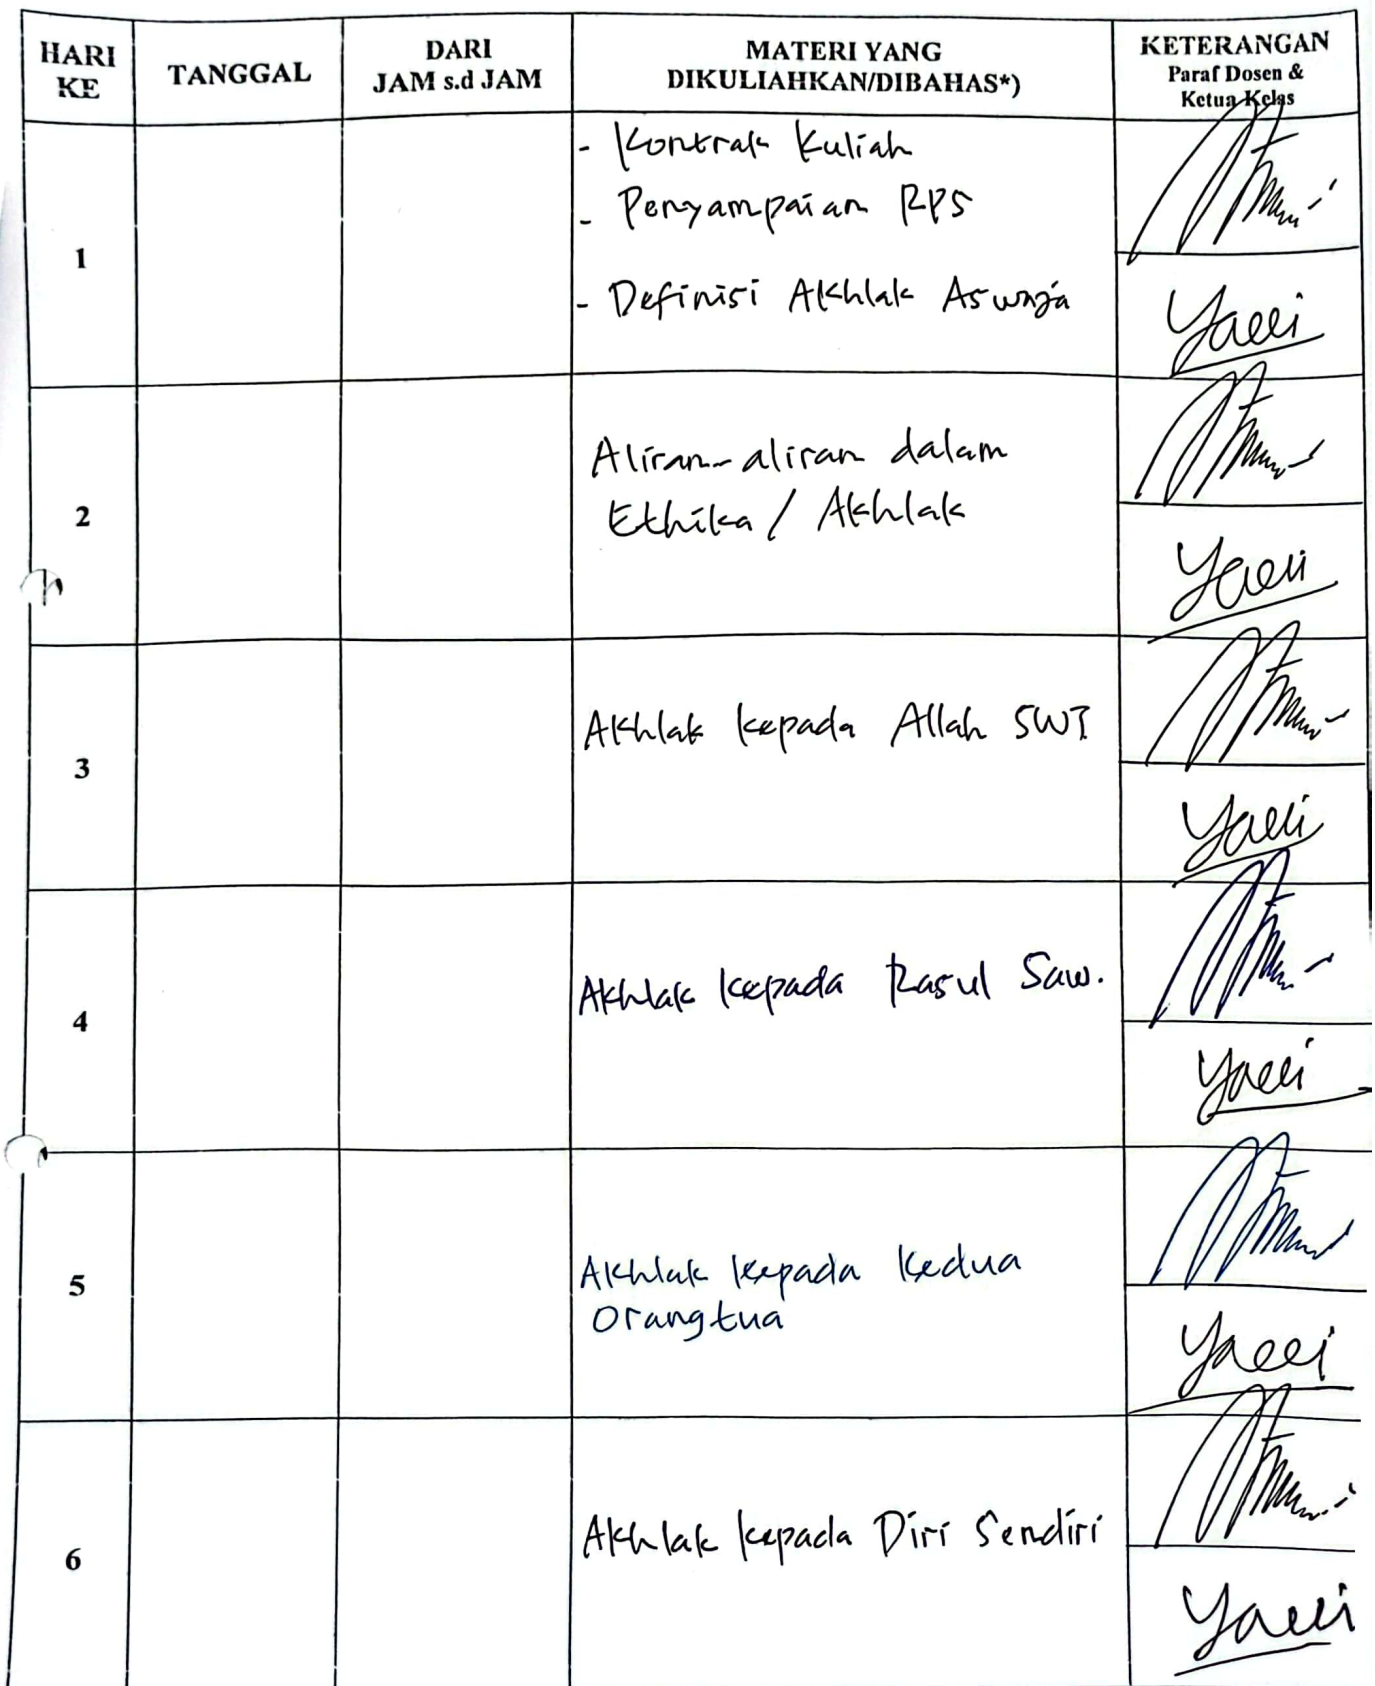 HARI KE
TANGGAL
DARI
JAM s.d JAM
MATERI YANG
DIKULIAHKAN/DIBAHAS*)
KETERANGAN
Paraf Dosen &
Ketua Kelas
1
- Kontrak Kuliah
- Penyampaian RPS
- Definisi Akhlak Aswaja
2
Aliran-aliran dalam
Ethika / Akhlak
3
Akhlak kepada Allah SWT
4
Akhlak kepada Rasul Saw.
5
Akhlak kepada Kedua
Orangtua
6
Akhlak kepada Diri Sendiri